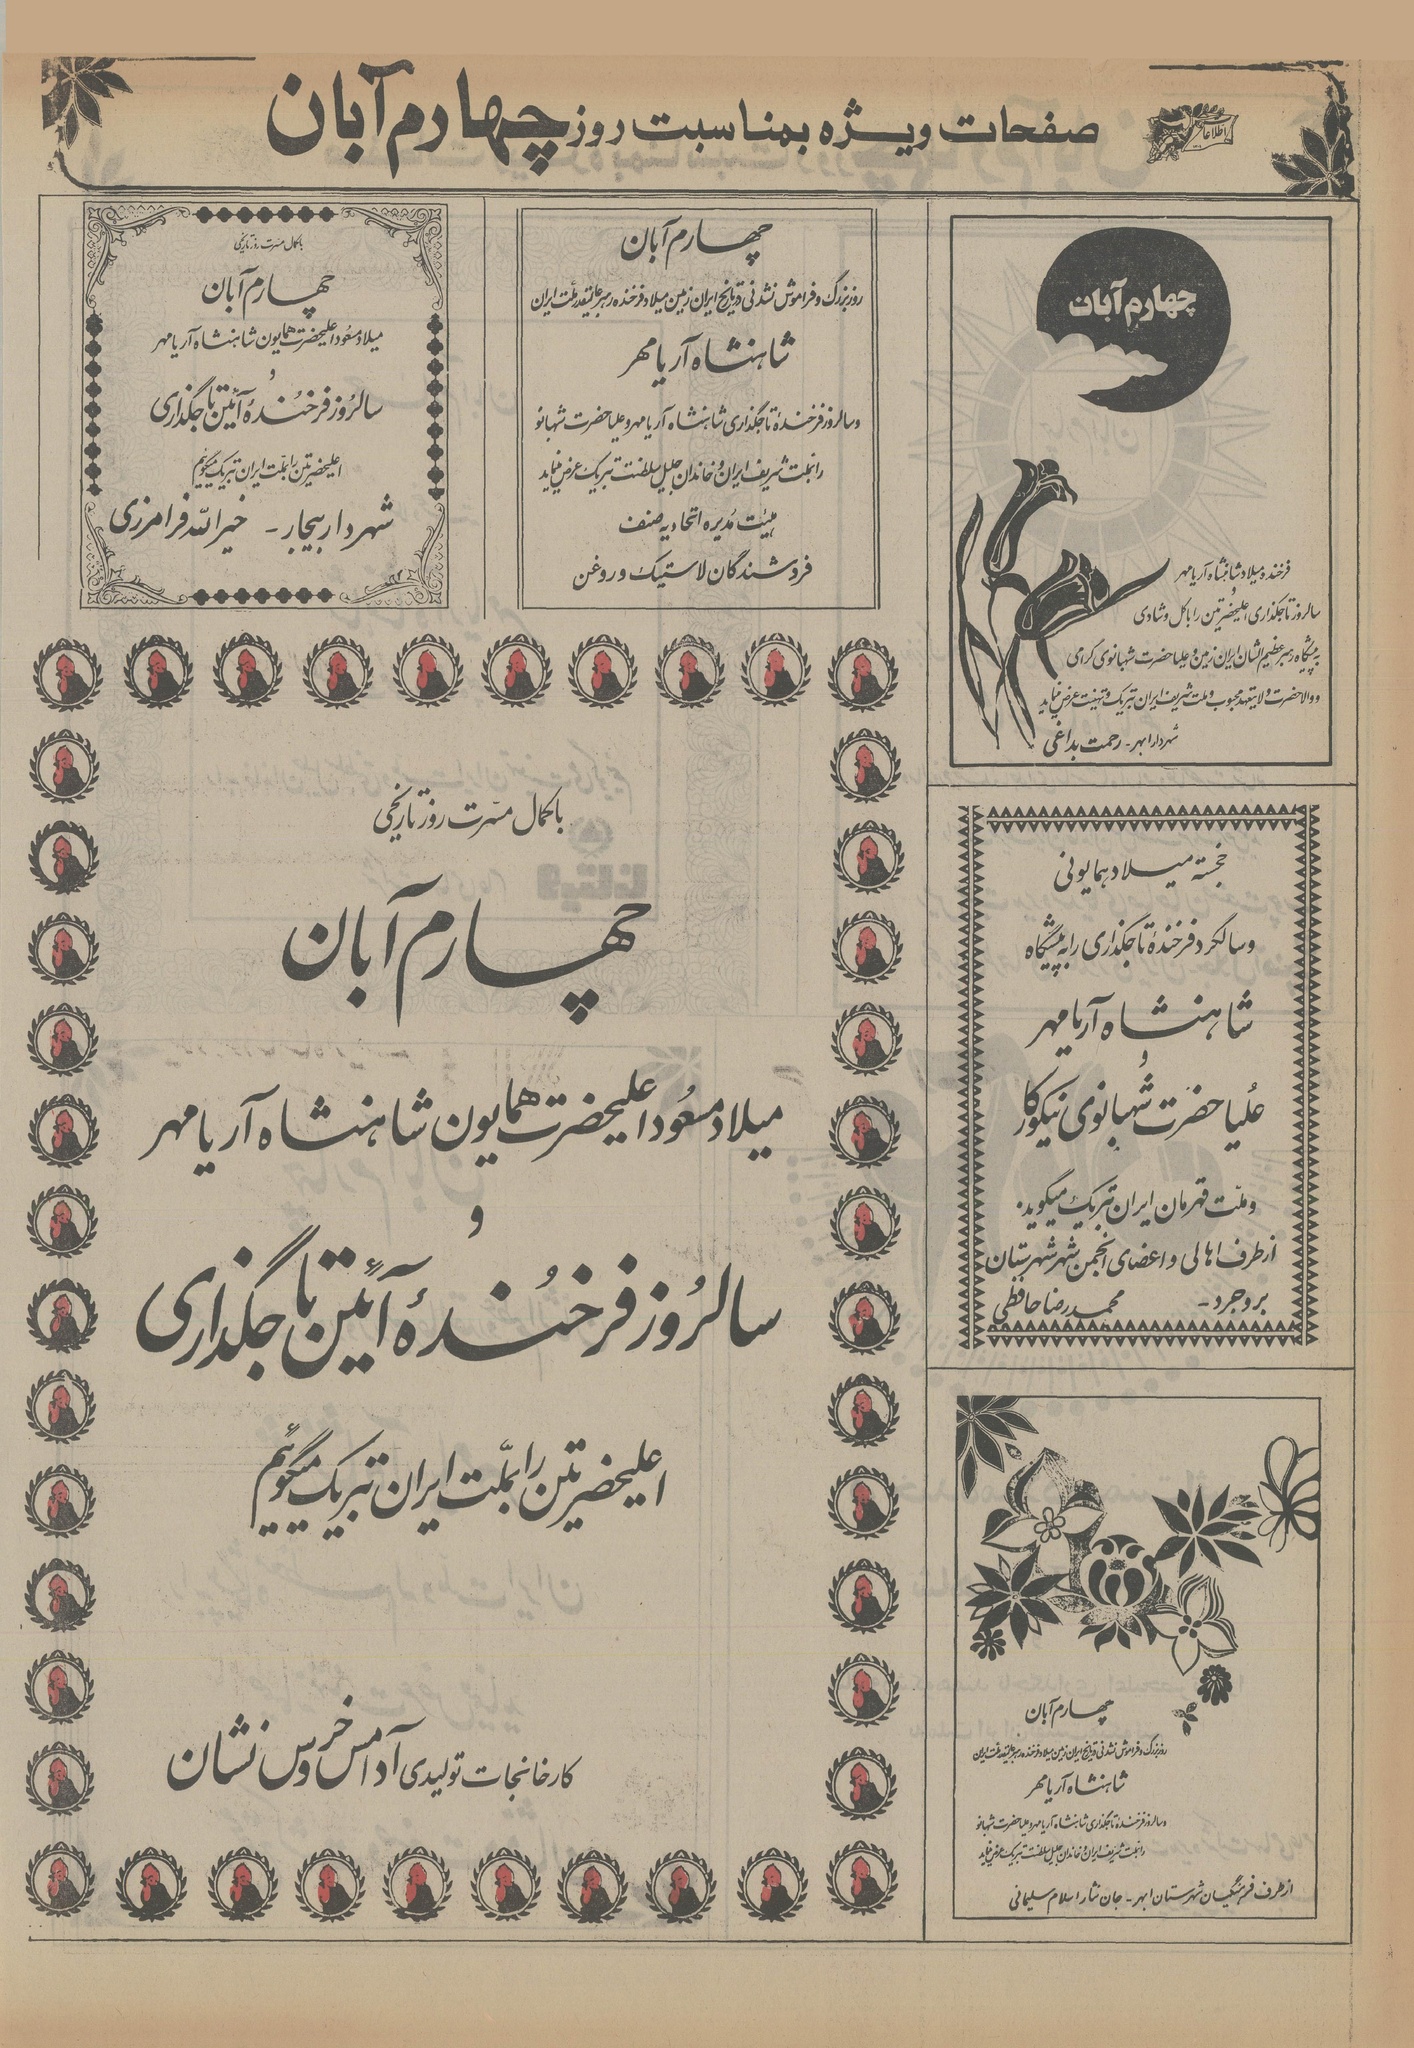 صفحات ویژه بمناسبت روز چهارم آبان
اطلاعات
چهارم آبان
فرخنده میلاد شاهنشاه آریامهر
و
سالروز تاجگذاری اعلیحضرتین را با گل و شادی
به پیشگاه رهبر عظیم الشان ایران زمین و علیاحضرت شهبانوی گرامی
و والاحضرت ولایتعهد محبوب و ملت شریف ایران تبریک و تهنیت عرض مینماید
شهردار ابهر - رحمت بداغی
چهارم آبان
روز بزرگ و فراموش نشدنی در تاریخ ایران زمین میلاد فرخنده رهبر عالیقدر ملت ایران
شاهنشاه آریامهر
و سالروز فرخندهٔ تاجگذاری شاهنشاه آریامهر و علیاحضرت شهبانو
را بملت شریف ایران و خاندان جلیل سلطنت تبریک عرض مینماید
هیئت مدیره اتحادیه صنف
فروشندگان لاستیک و روغن
با کمال مسرت روز تاریخی
چهارم آبان
میلاد مسعود اعلیحضرت همایون شاهنشاه آریامهر
و
سالروز فرخندهٔ آئین تاجگذاری
اعلیحضرتین را بملت ایران تبریک میگوئیم
شهردار بیجار - خیرالله فرامرزی
خجسته میلاد همایونی
و سالگرد فرخندهٔ تاجگذاری را به پیشگاه
شاهنشاه آریامهر
و
علیاحضرت شهبانوی نیکوکار
و ملت قهرمان ایران تبریک میگوید.
از طرف اهالی و اعضای انجمن شهر شهرستان
بروجرد - محمدرضا حافظی
با کمال مسرت روز تاریخی
چهارم آبان
میلاد مسعود اعلیحضرت همایون شاهنشاه آریامهر
و
سالروز فرخندهٔ آئین تاجگذاری
اعلیحضرتین را بملت ایران تبریک میگوئیم
کارخانجات تولیدی آدامس خروس نشان
چهارم آبان
روز بزرگ و فراموش نشدنی در تاریخ ایران زمین میلاد فرخنده رهبر عالیقدر ملت ایران
شاهنشاه آریامهر
و سالروز فرخندهٔ تاجگذاری شاهنشاه آریامهر و علیاحضرت شهبانو
را بملت شریف ایران و خاندان جلیل سلطنت تبریک عرض مینماید
از طرف فرهنگیان شهرستان ابهر - جان نثار اسلام سلیمانی